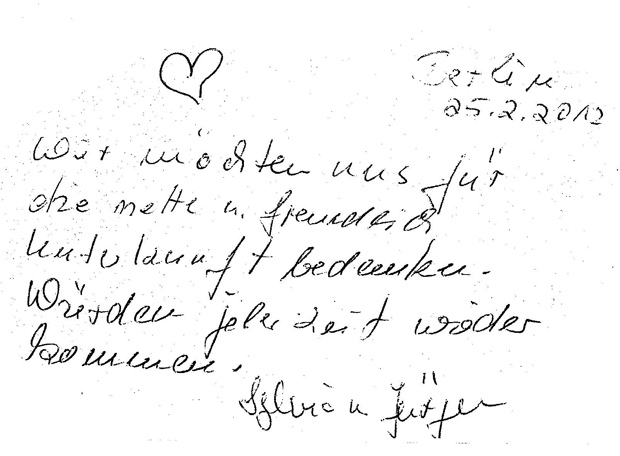 Berlin
25.2.2012
Wir möchten uns für
die nette u. freundlich
Unterkunft bedanken.
Würden jeder zeit wieder
kommen.
Sylvia u Jürgen